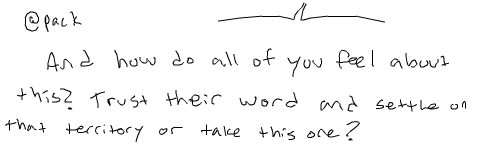 @pack
And how do all of you feel about
this? Trust their word and settle on
that territory or take this one?